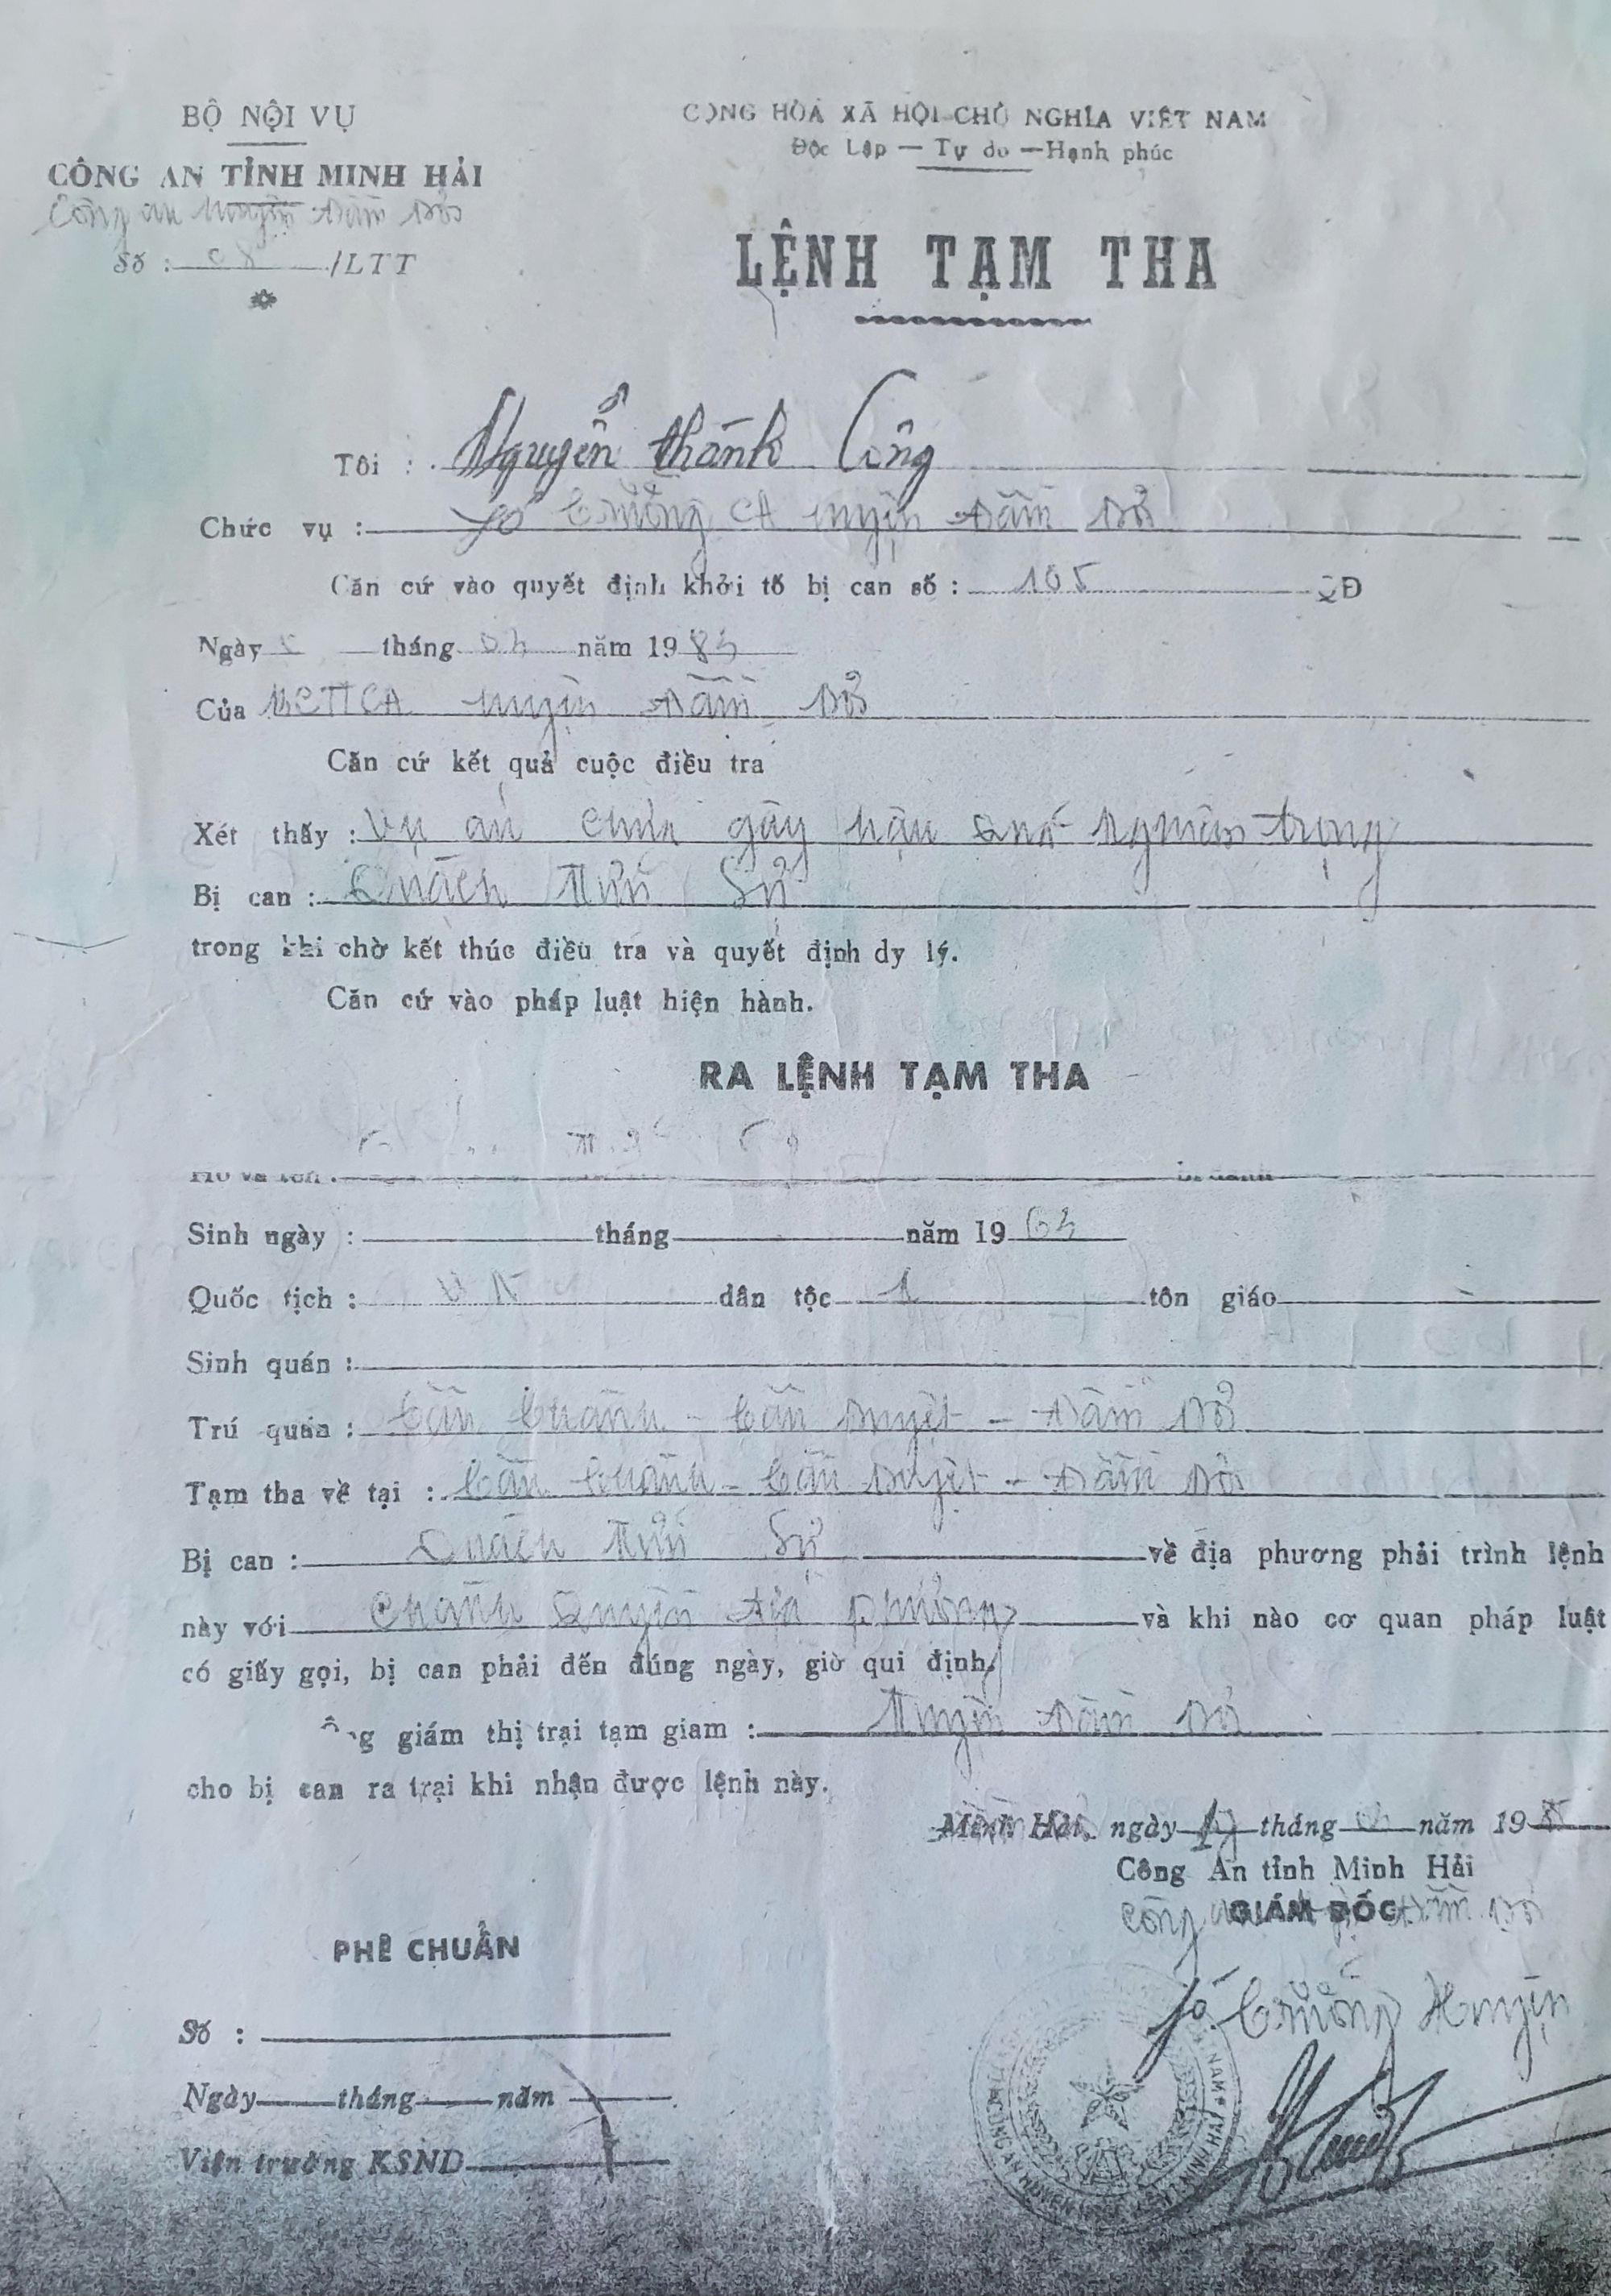 BỘ NỘI VỤ
CÔNG AN TỈNH MINH HẢI
Công an huyện Đầm Dơi
Số : 08 /LTT
CỘNG HÒA XÃ HỘI CHỦ NGHĨA VIỆT NAM
Độc Lập — Tự do — Hạnh phúc
LỆNH TẠM THA
Tôi : Nguyễn thành Công
Chức vụ : Phó trưởng CA huyện Đầm Dơi
Căn cứ vào quyết định khởi tố bị can số : 105 QĐ
Ngày tháng năm 19
Của huyện Đầm Dơi
Căn cứ kết quả cuộc điều tra
Xét thấy : Vụ án chưa gây hậu quả nghiêm trọng
Bị can : Quách
trong khi chờ kết thúc điều tra và quyết định dy lý.
Căn cứ vào pháp luật hiện hành.
RA LỆNH TẠM THA
Họ và tên : Bí danh
Sinh ngày : tháng năm 19 63
Quốc tịch : VN dân tộc tôn giáo —
Sinh quán :
Trú quán : Tân thành - Tân Duyệt - Đầm Dơi
Tạm tha về tại : Tân thành - Tân Duyệt - Đầm Dơi
Bị can : Quách về địa phương phải trình lệnh
này với chánh quyền địa phương và khi nào cơ quan pháp luật
có giấy gọi, bị can phải đến đúng ngày, giờ qui định,
Ông giám thị trại tạm giam : Huyện Đầm Dơi
cho bị can ra trại khi nhận được lệnh này.
Minh Hải, ngày tháng năm 19
Công An tỉnh Minh Hải
GIÁM ĐỐC
Công an Đầm Dơi
Phó trưởng Huyện
PHÊ CHUẨN
Số :
Ngày tháng năm
Viện trưởng KSND
CÔNG AN HUYỆN